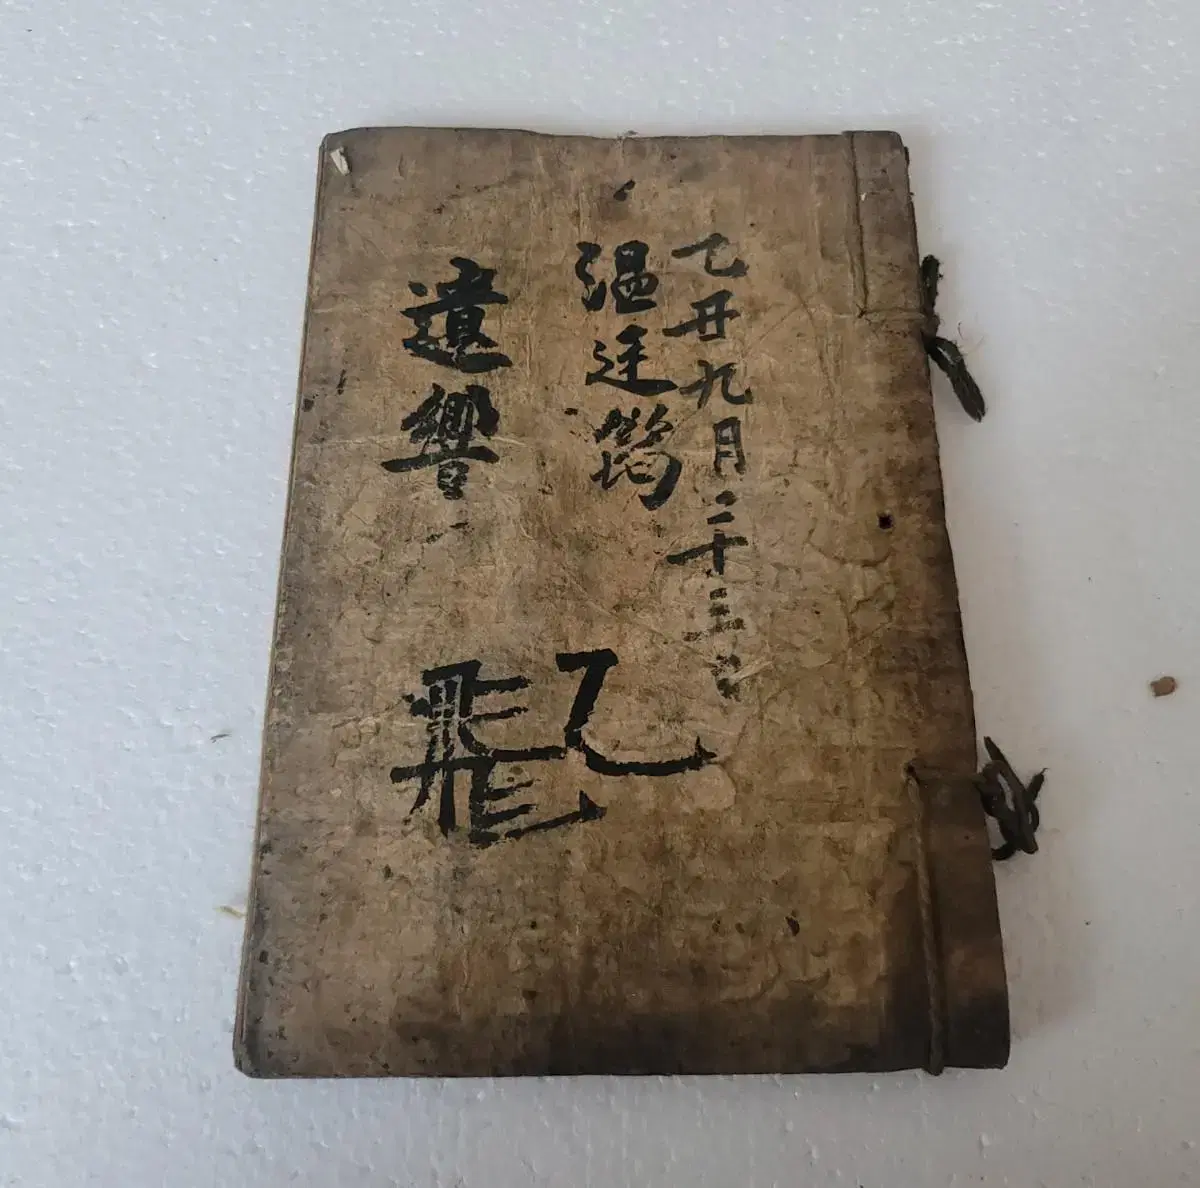 乙丑九月二十三日
温廷筠
遺響
乙
飛